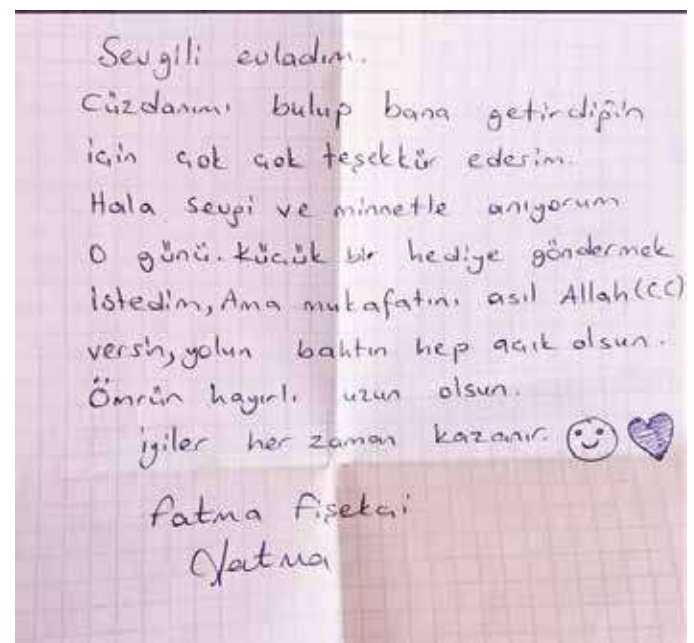 Sevgili evladım.
Cüzdanımı bulup bana getirdiğin
için çok çok teşekkür ederim.
Hala sevgi ve minnetle anıyorum
O günü. Küçük bir hediye göndermek
istedim, Ama mukafatını asıl Allah (CC)
versin, yolun bahtın hep açık olsun.
Ömrün hayırlı uzun olsun.
iyiler her zaman kazanır.
Fatma Fişekçi
Fatma